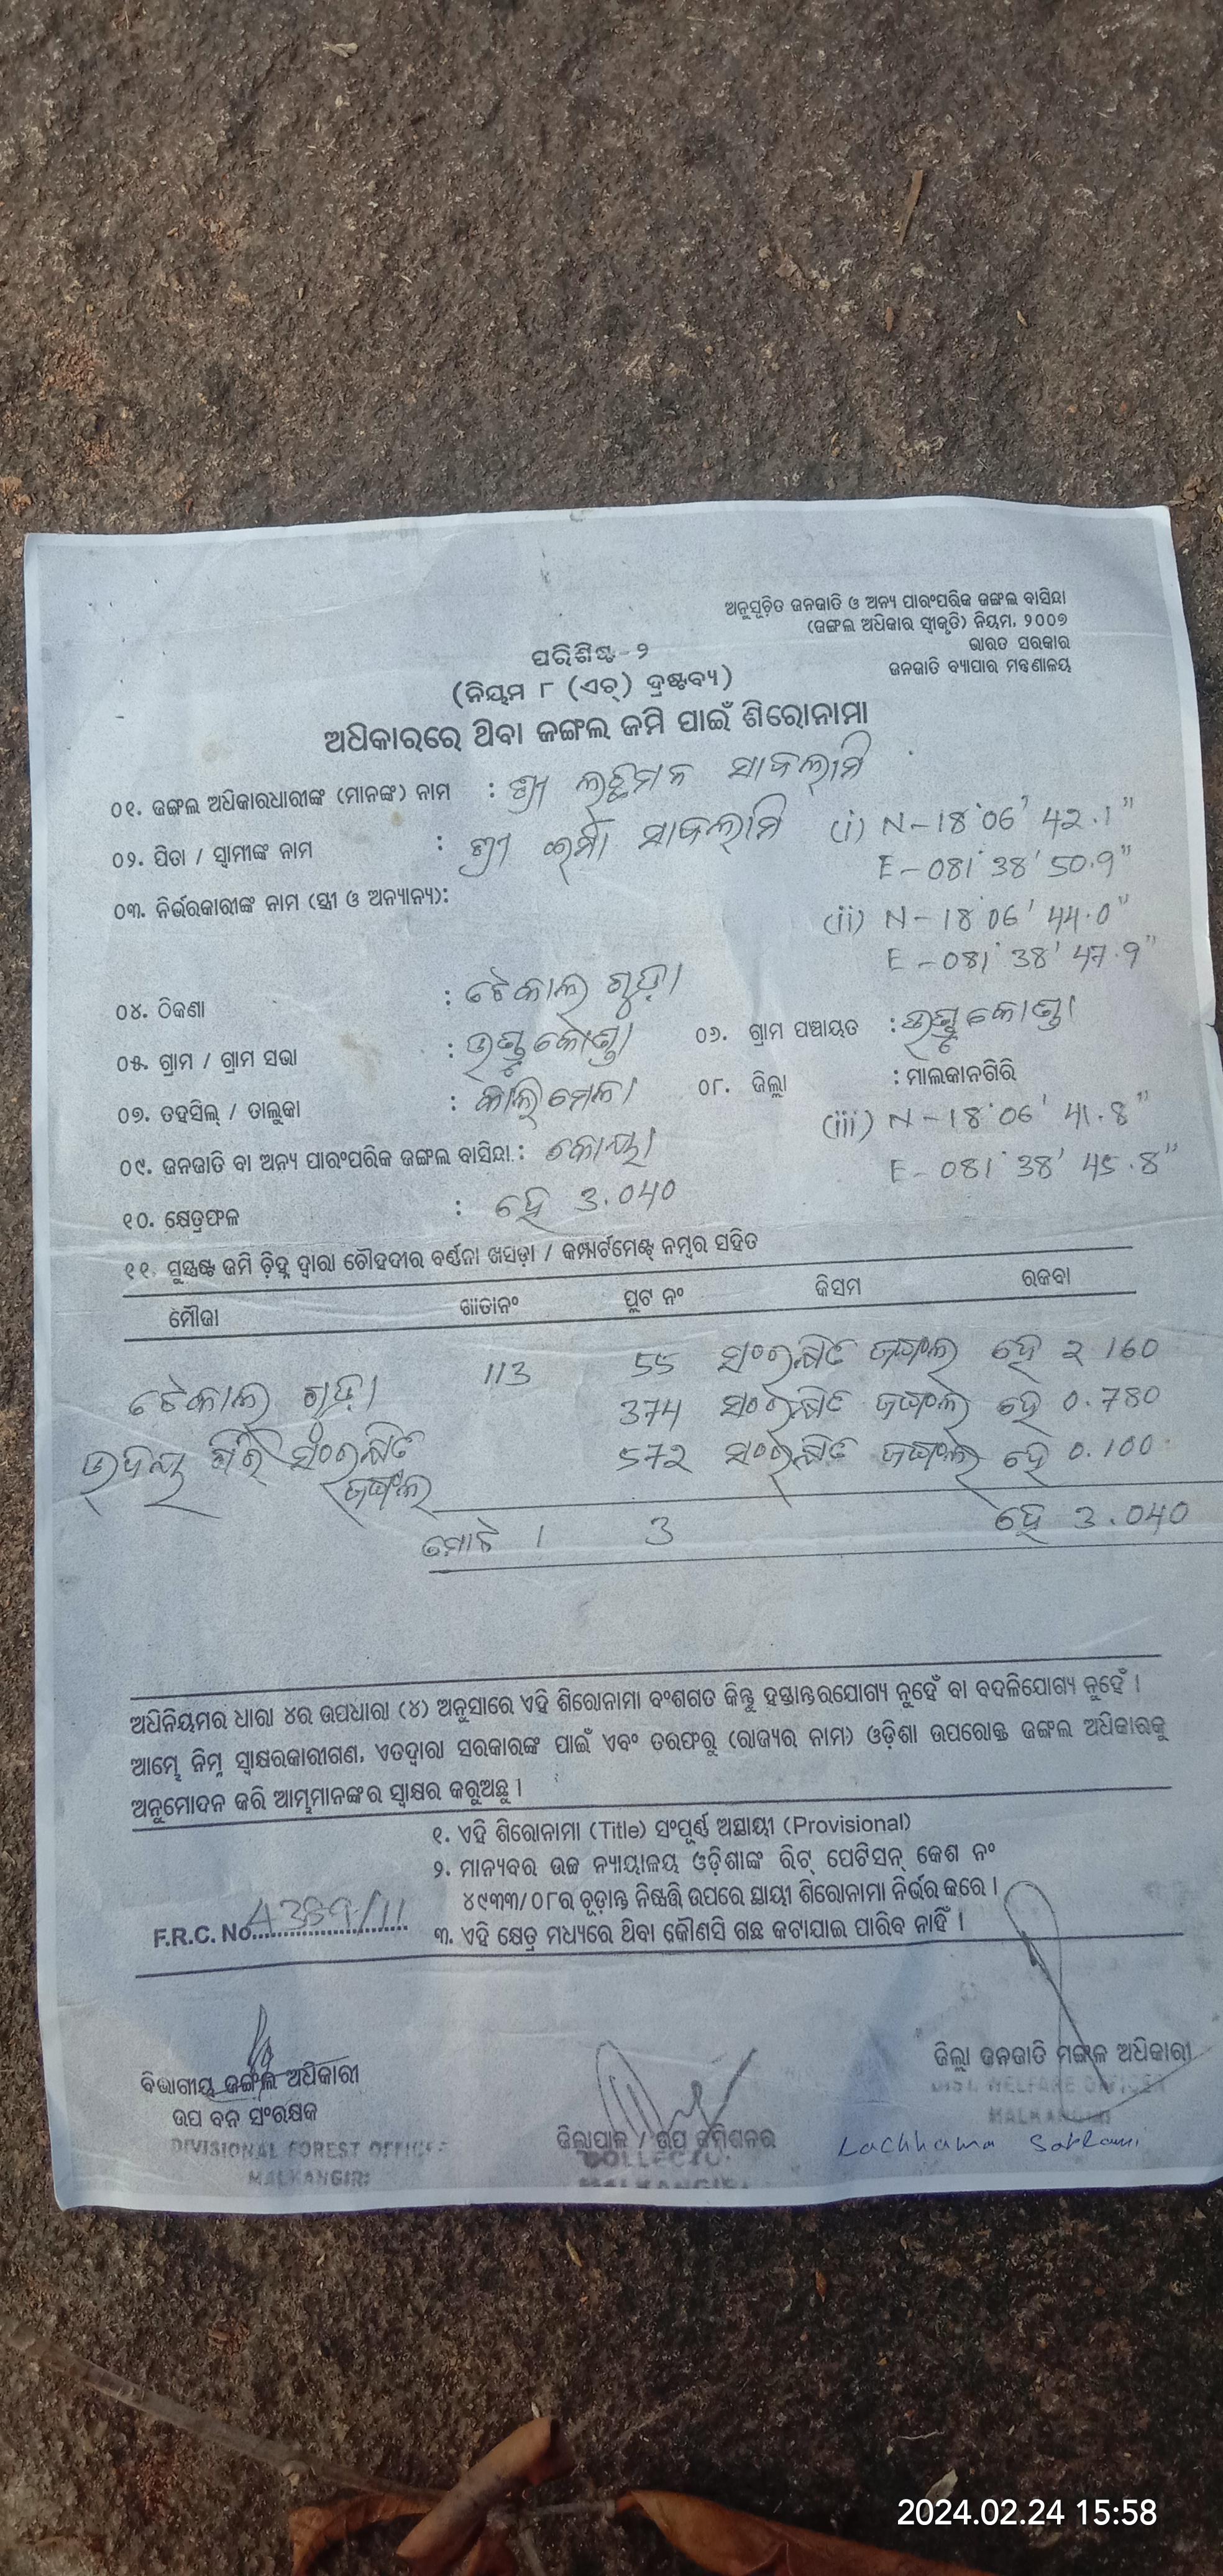 ଅନୁସୂଚିତ ଜନଜାତି ଓ ଅନ୍ୟ ପାରଂପରିକ ଜଙ୍ଗଲ ବାସିନ୍ଦା
(ଜଙ୍ଗଲ ଅଧିକାର ସ୍ୱୀକୃତି) ନିୟମ, ୨୦୦୭
ଭାରତ ସରକାର
ଜନଜାତି ବ୍ୟାପାର ମନ୍ତ୍ରଣାଳୟ
ପରିଶିଷ୍ଟ-୨
(ନିୟମ ୮ (ଏଚ୍) ଦ୍ରଷ୍ଟବ୍ୟ)
ଅଧିକାରରେ ଥିବା ଜଙ୍ଗଲ ଜମି ପାଇଁ ଶିରୋନାମା
୦୧. ଜଙ୍ଗଲ ଅଧିକାରଧାରୀଙ୍କ (ମାନଙ୍କ) ନାମ : ଶ୍ରୀ ଲଚ୍ଛିମନ ସାବଲାମି
୦୨. ପିତା / ସ୍ୱାମୀଙ୍କ ନାମ : ଶ୍ରୀ ଇର୍ମା ସାବଲାମି (i) N-18°06' 42.1"
E-081°38' 50.9"
୦୩. ନିର୍ଭରକାରୀଙ୍କ ନାମ (ସ୍ତ୍ରୀ ଓ ଅନ୍ୟାନ୍ୟ):
(ii) N-18°06' 44.0"
E-081°38' 47.9"
୦୪. ଠିକଣା : ଟେକାଲ ଗୁଡ଼ା
୦୫. ଗ୍ରାମ / ଗ୍ରାମ ସଭା : ଉଣ୍ଡ୍ରୁକୋଣ୍ଡା ୦୬. ଗ୍ରାମ ପଞ୍ଚାୟତ : ଉଣ୍ଡ୍ରୁକୋଣ୍ଡା
୦୭. ତହସିଲ୍ / ତାଲୁକା : କାଲିମେଳା ୦୮. ଜିଲ୍ଲା : ମାଲକାନଗିରି
(iii) N-18°06' 41.8"
୦୯. ଜନଜାତି ବା ଅନ୍ୟ ପାରଂପରିକ ଜଙ୍ଗଲ ବାସିନ୍ଦା : କୋୟା
E-081°38' 45.8"
୧୦. କ୍ଷେତ୍ରଫଳ : ହେ 3.040
୧୧. ସୁସ୍ପଷ୍ଟ ଜମି ଚିହ୍ନ ଦ୍ୱାରା ଚୌହଦୀର ବର୍ଣ୍ଣନା ଖସଡ଼ା / କମ୍ପାର୍ଟମେଣ୍ଟ୍ ନମ୍ବର ସହିତ
ମୌଜା ଖାତାନଂ ପ୍ଲଟ ନଂ କିସମ ରକବା
ଟେକାଲ ଗୁଡ଼ା 113 55 ସଂରକ୍ଷିତ ଜଙ୍ଗଲ ହେ 2.160
374 ସଂରକ୍ଷିତ ଜଙ୍ଗଲ ହେ 0.780
ଉଦୟ ଗିରି ସଂରକ୍ଷିତ 572 ସଂରକ୍ଷିତ ଜଙ୍ଗଲ ହେ 0.100
ଜଙ୍ଗଲ
ମୋଟ 1 3 ହେ 3.040
ଅଧିନିୟମର ଧାରା ୪ର ଉପଧାରା (୪) ଅନୁସାରେ ଏହି ଶିରୋନାମା ବଂଶଗତ କିନ୍ତୁ ହସ୍ତାନ୍ତରଯୋଗ୍ୟ ନୁହେଁ ବା ବଦଳିଯୋଗ୍ୟ ନୁହେଁ ।
ଆମ୍ଭେ ନିମ୍ନ ସ୍ୱାକ୍ଷରକାରୀଗଣ, ଏତଦ୍ୱାରା ସରକାରଙ୍କ ପାଇଁ ଏବଂ ତରଫରୁ (ରାଜ୍ୟର ନାମ) ଓଡ଼ିଶା ଉପରୋକ୍ତ ଜଙ୍ଗଲ ଅଧିକାରକୁ
ଅନୁମୋଦନ କରି ଆମ୍ଭମାନଙ୍କର ସ୍ୱାକ୍ଷର କରୁଅଛୁ ।
୧. ଏହି ଶିରୋନାମା (Title) ସଂପୂର୍ଣ୍ଣ ଅସ୍ଥାୟୀ (Provisional)
୨. ମାନ୍ୟବର ଉଚ୍ଚ ନ୍ୟାୟାଳୟ ଓଡ଼ିଶାଙ୍କ ରିଟ୍ ପେଟିସନ୍ କେଶ ନଂ
୪୯୩୩/୦୮ର ଚୂଡ଼ାନ୍ତ ନିଷ୍ପତ୍ତି ଉପରେ ସ୍ଥାୟୀ ଶିରୋନାମା ନିର୍ଭର କରେ ।
F.R.C. No.
୩. ଏହି କ୍ଷେତ୍ର ମଧ୍ୟରେ ଥିବା କୌଣସି ଗଛ କଟାଯାଇ ପାରିବ ନାହିଁ ।
ବିଭାଗୀୟ ଜଙ୍ଗଲ ଅଧିକାରୀ
ଉପ ବନ ସଂରକ୍ଷକ
DIVISIONAL FOREST OFFICER
MALKANGIRI
ଜିଲ୍ଲାପାଳ / ଉପ କମିଶନର
COLLECTOR
MALKANGIRI
ଜିଲ୍ଲା ଜନଜାତି ମଙ୍ଗଳ ଅଧିକାରୀ
DIST. WELFARE OFFICER
MALKANGIRI
Lachhama Sablami
2024.02.24 15:58